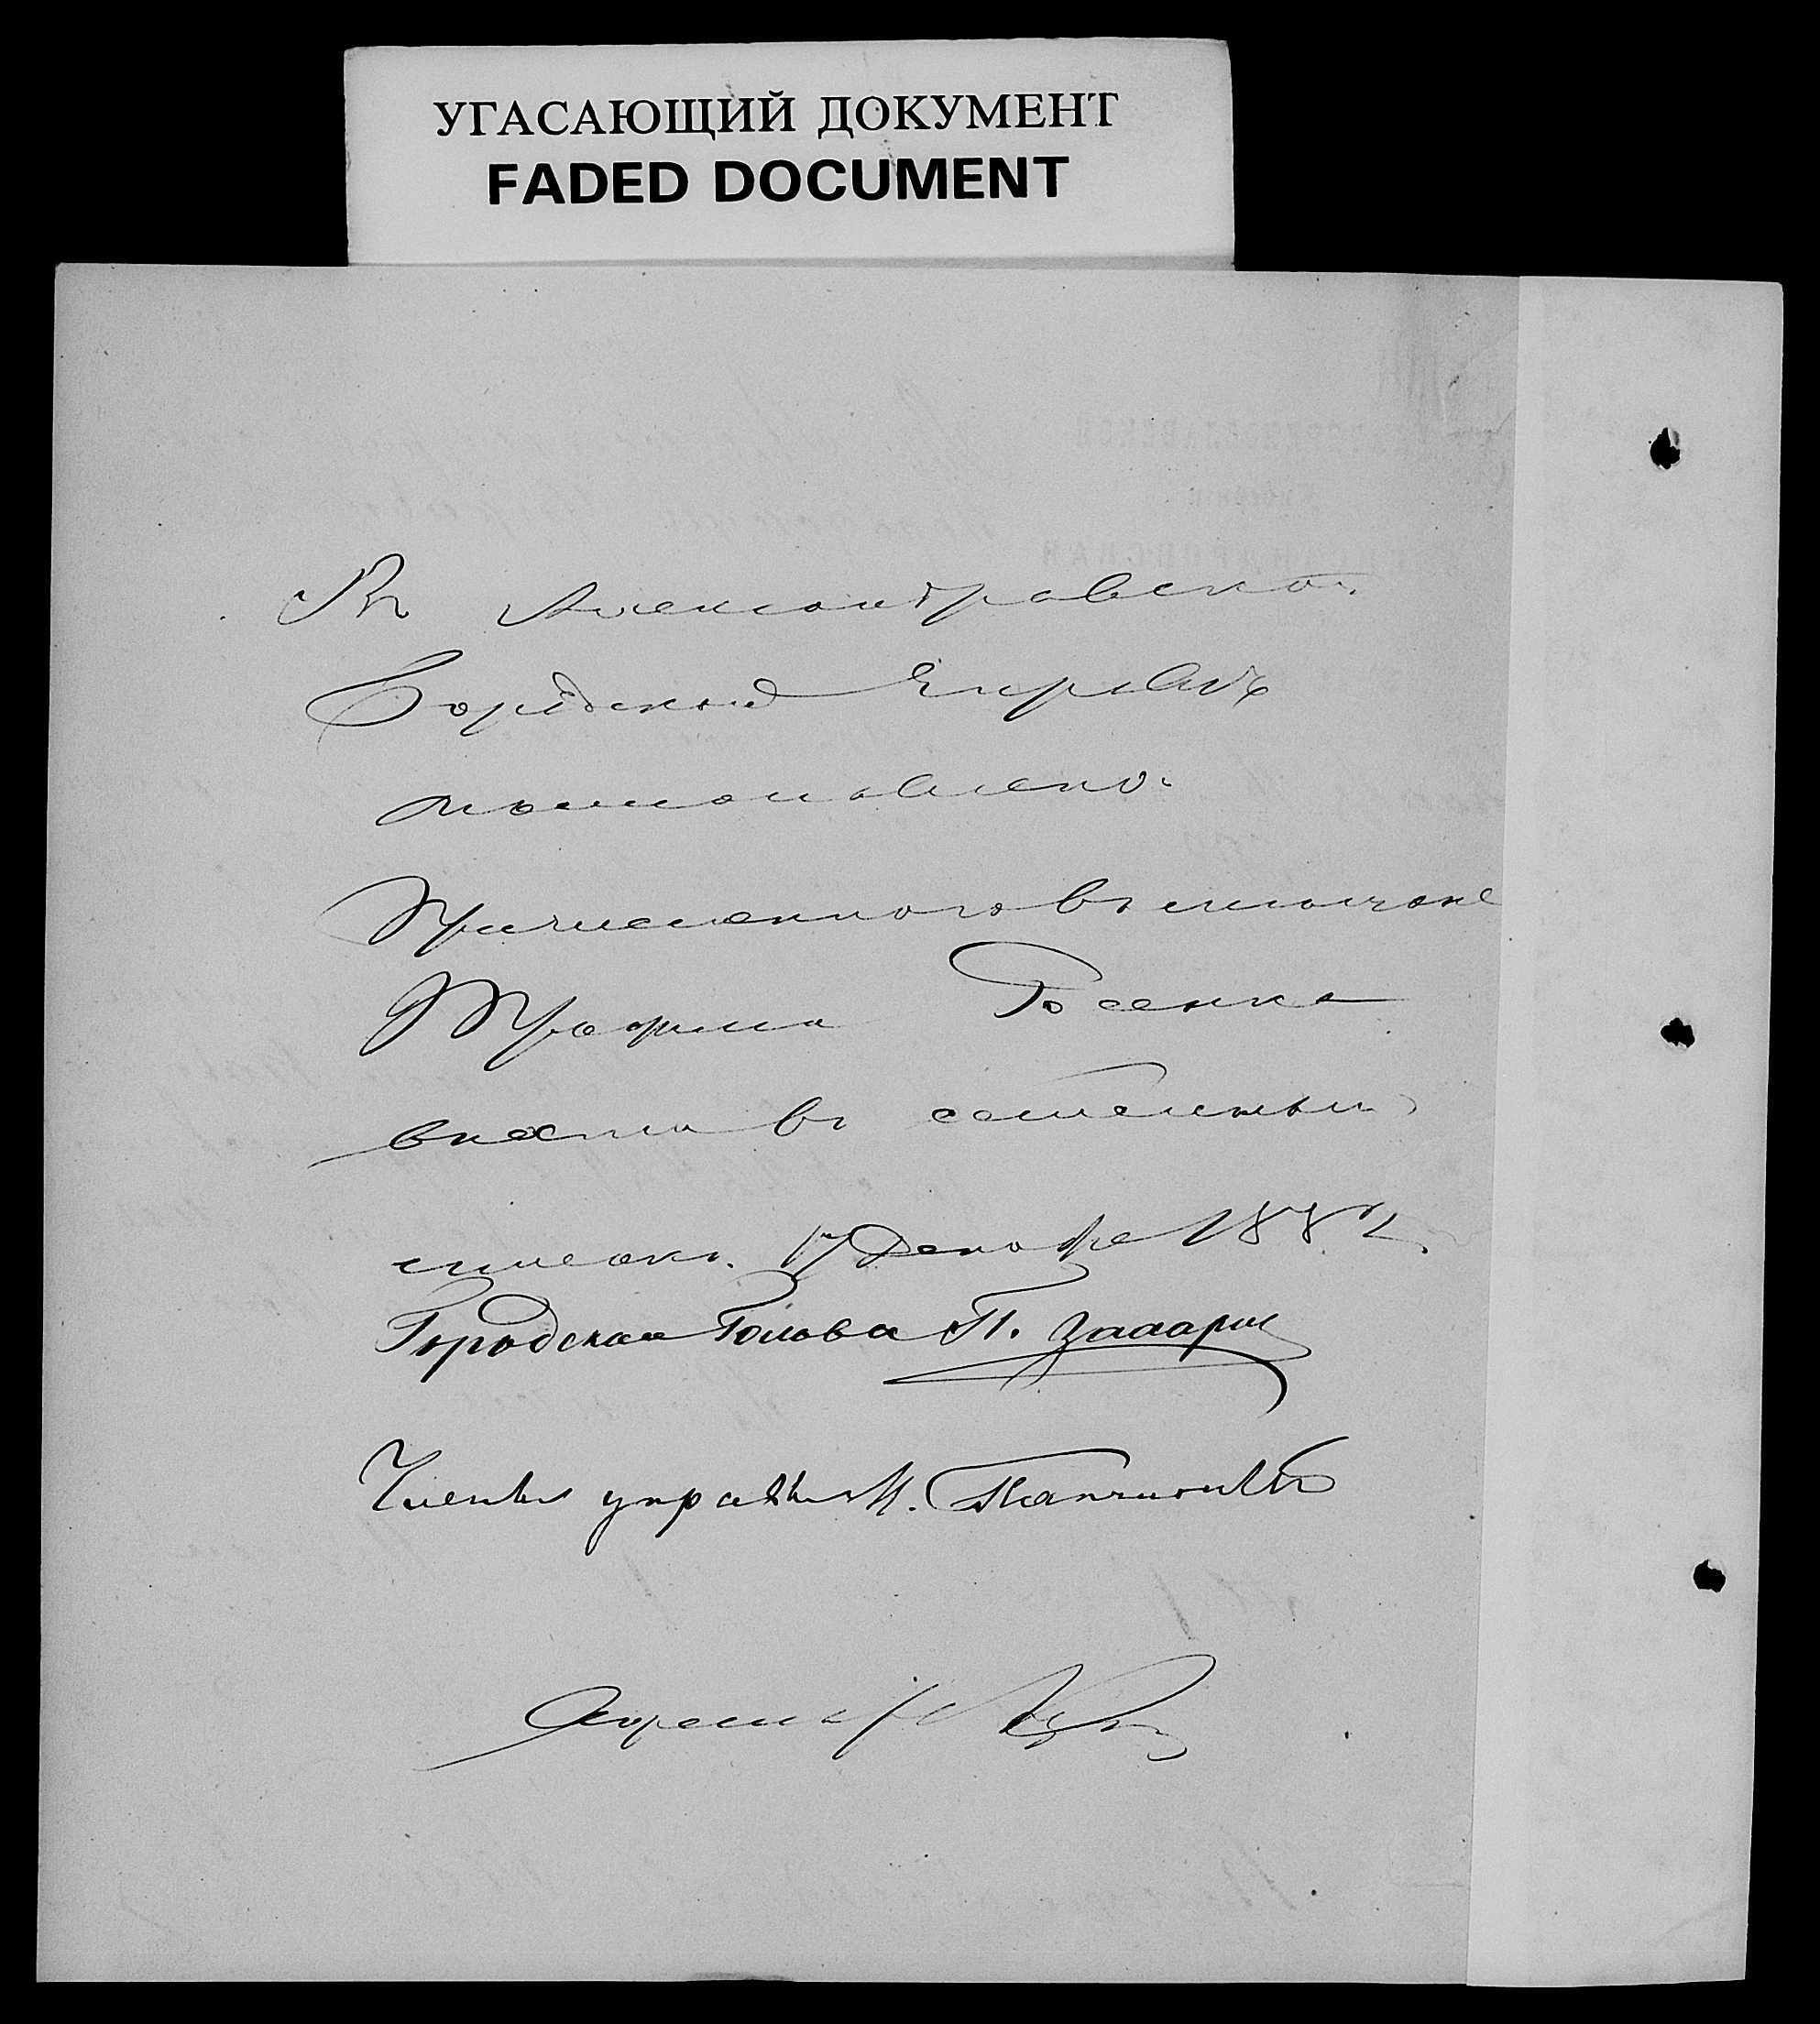 УГАСАЮЩИЙ ДОКУМЕНТ
FADED DOCUMENT
Въ Александровской
Городской Управѣ
постановлено:
Причисленного въ мещане
Трофима
внести въ семейный
списокъ. 17 Декабря 1882
Городская Голова П.
Члены управы